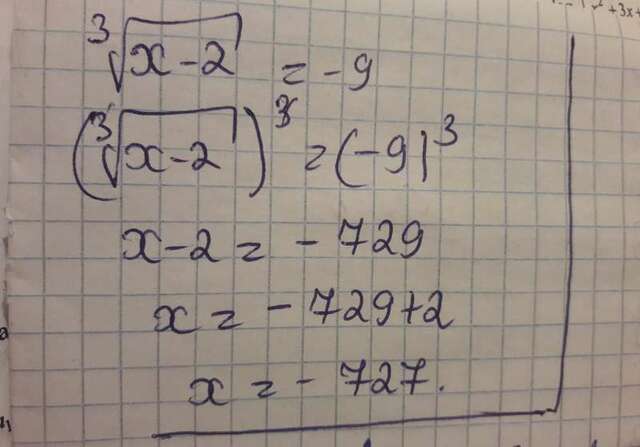 ∛(x-2) = -9
(∛(x-2))³ = (-9)³
x-2 = -729
x = -729+2
x = -727.